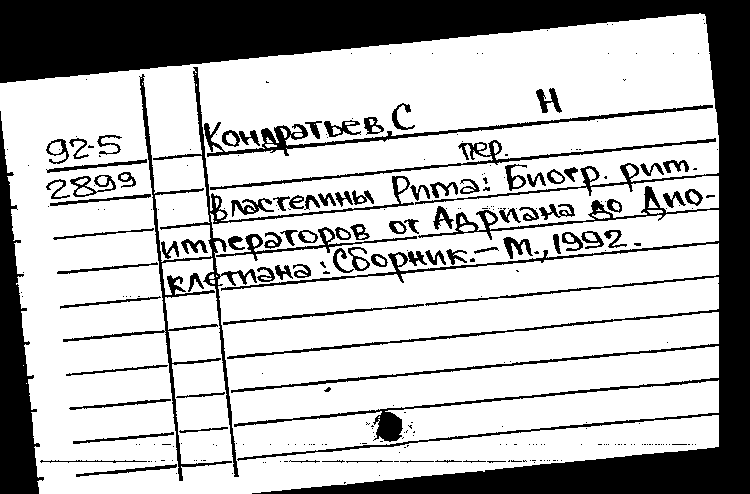 92-5
2899
Кондратьев, С Н
пер.
Властелины Рима: Биогр. рим.
императоров от Адриана до Дио-
клетиана: Сборник. - М., 1992.